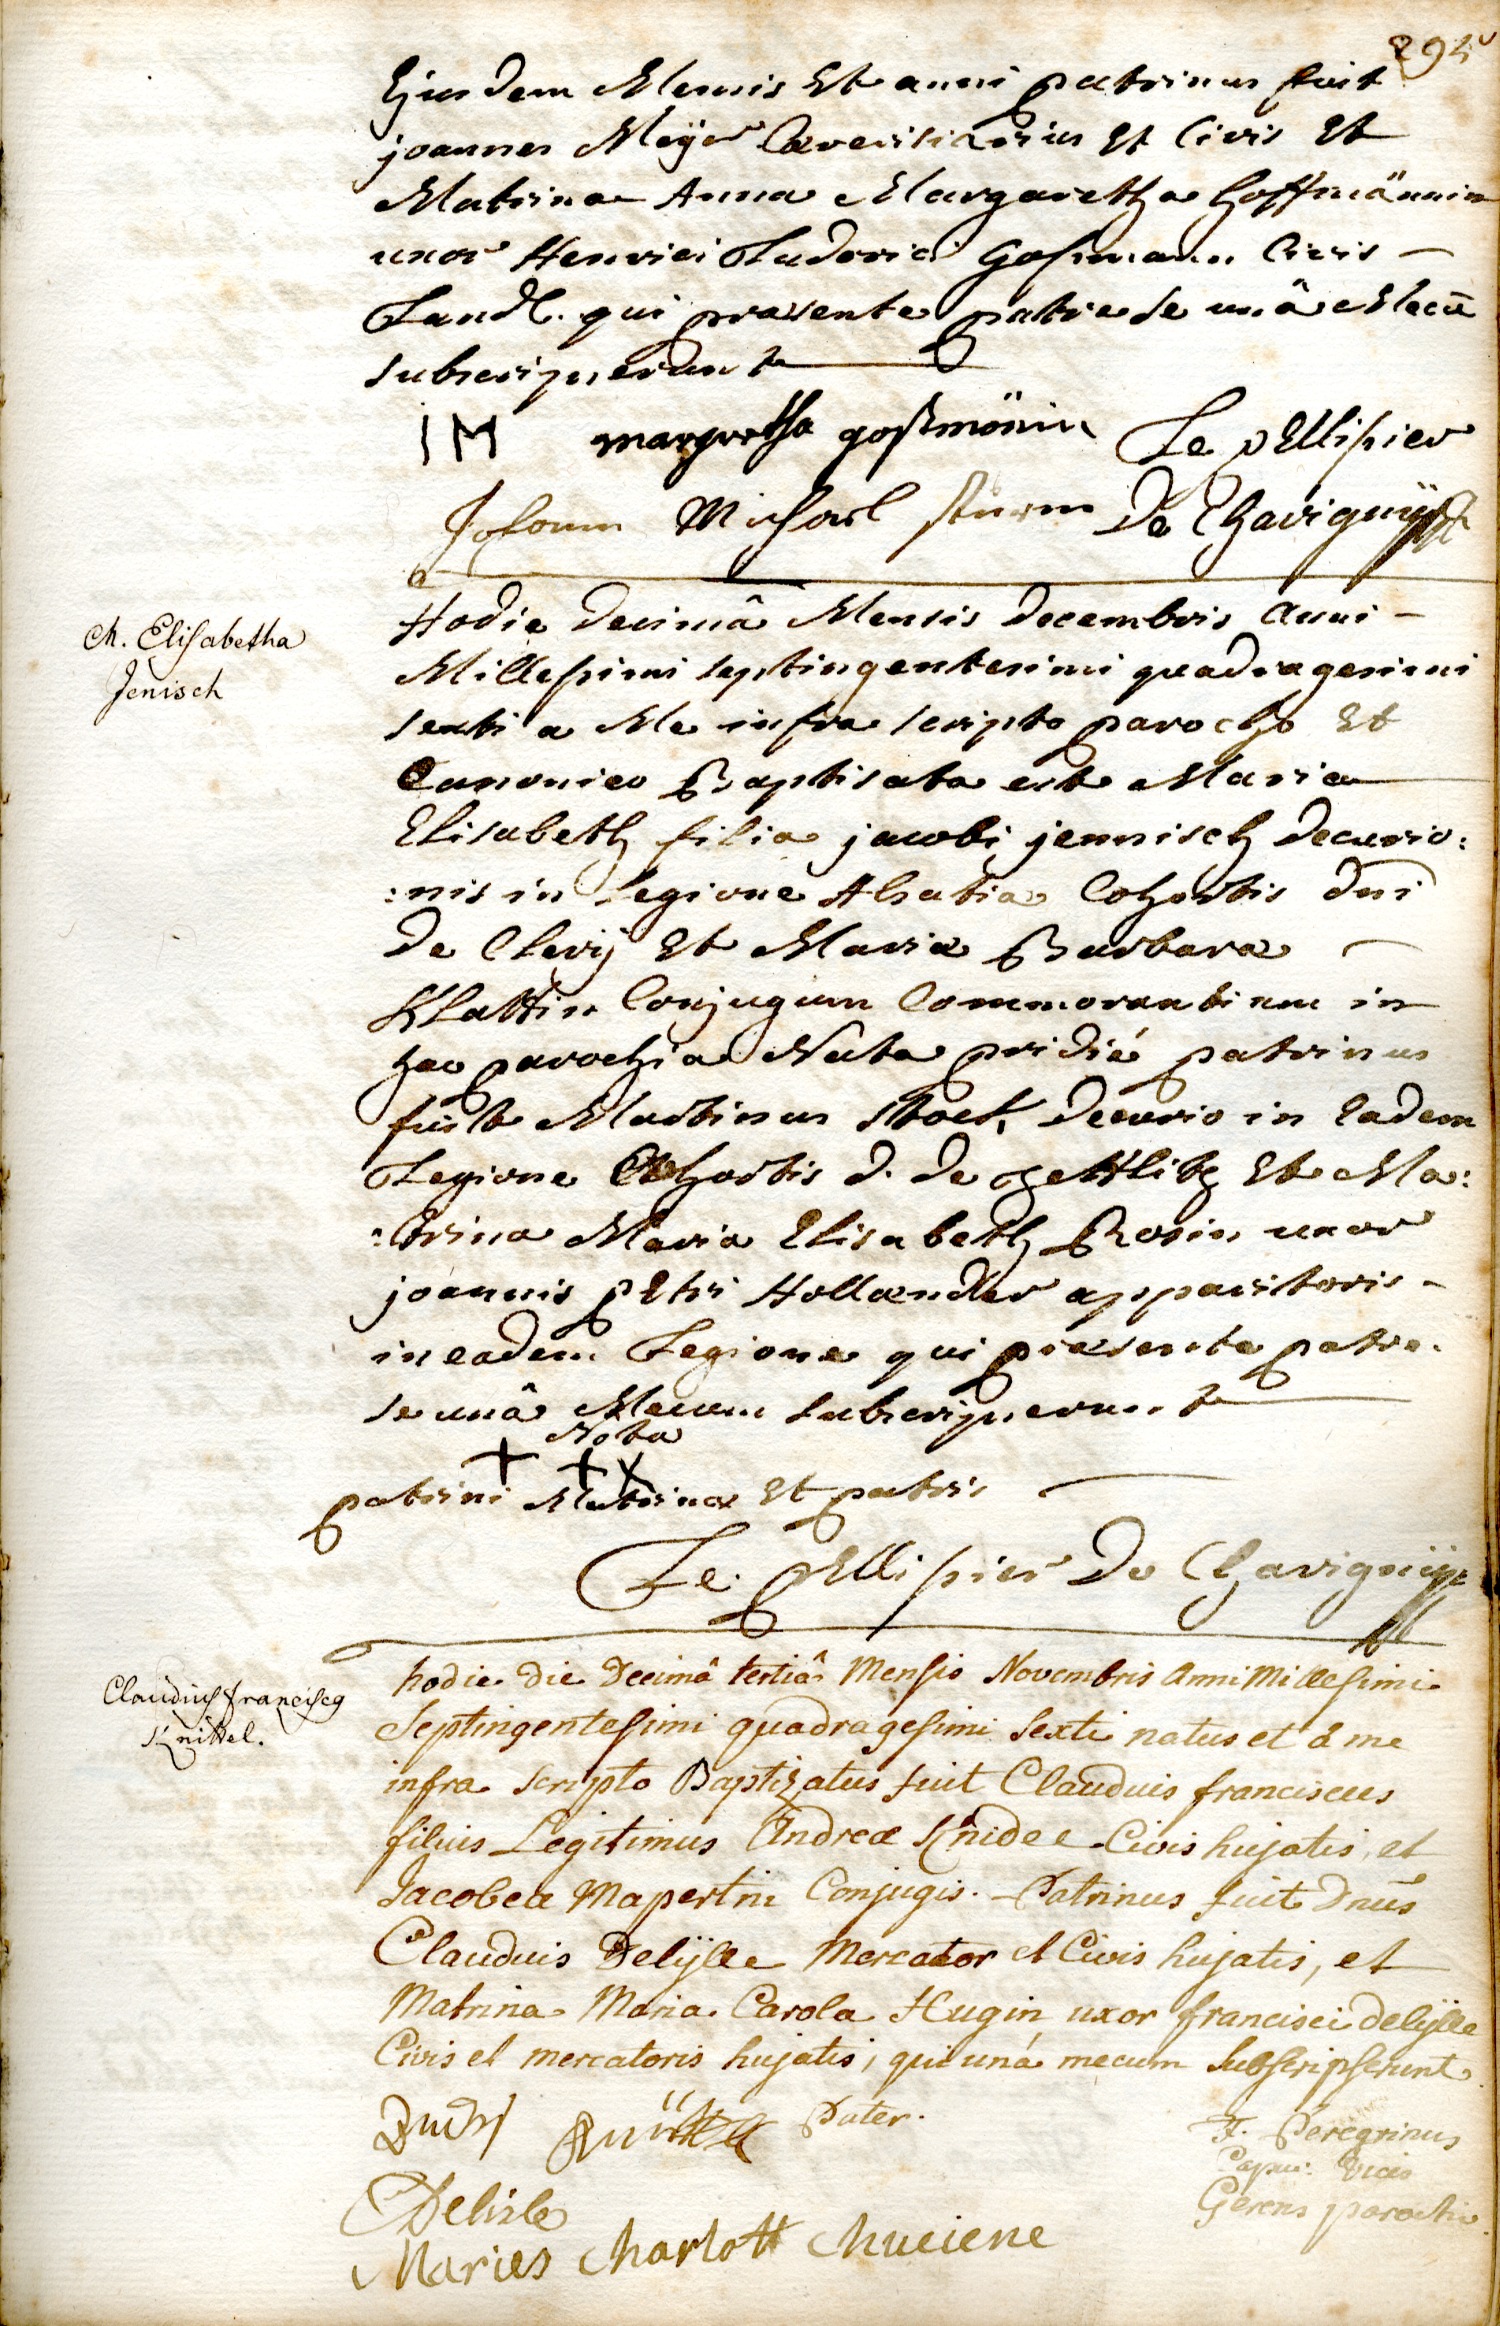 294
Ejusdem Mensis Et anni patrinus fuit
joannes Meÿer Cerevisiarius Et Civis Et
Matrina Anna Margaretha Goffmännin
uxor Henrici Ludovici Gosmann Civis –
Land. qui praesente patre se unâ Mecū
subscripserunt
IM margretha gosmönin Le pEllisier
Johann Michael Sturm De Chavignÿ
M. Elisabetha
Jenisch
Hodie Decimâ Mensis Decembris Anni –
Millesimi septingentesimi quadragesimi
sexti a Me infra scripto parocho Et
Canonico Baptisata est Maria
Elisabeth filia jacobi jennisch Decurio:
:nis in Legione Alsatia Cohortis dni
De Clerij Et Maria Barbara
Klattin Conjugum Commorantium in
hac parochia Nata pridié patrinus
fuit Martinus Stock Decurio in Eadem
Legione Cohortis D. De Zettlitz Et Ma:
:trina Maria Elisabeth Rosin uxor
joannis pEtri Hollaender apparitoris –
in eadem Legione qui praesente patre.
se unâ Mecum subscripserunt
Nota
patrini Matrinae Et patris
Le pEllisier De Chavignÿ
Claudius franciscq
Knittel.
hodie die Decimâ tertiâ Mensis Novembris Anni Millesimi
Septingentesimi quadragesimi Sexti natus et à me
infra scripto Baptizatus fuit Claudius franciscus
filius Legitimus Andreae Knidel Civis hujatis, et
Jacobea Mapertin Conjugis. Patrinus fuit Dnus
Claudius Delijlle Mercator et Civis hujatis, et
Matrina Maria Carola Hugin uxor francisci delijlle
Civis et mercatoris hujatis, qui uná mecum Subscripserunt
Pater.
F. Peregrinus
Capuc: Vices
Gerens parochi.
CDelisle
Maries Charlott Chuciene